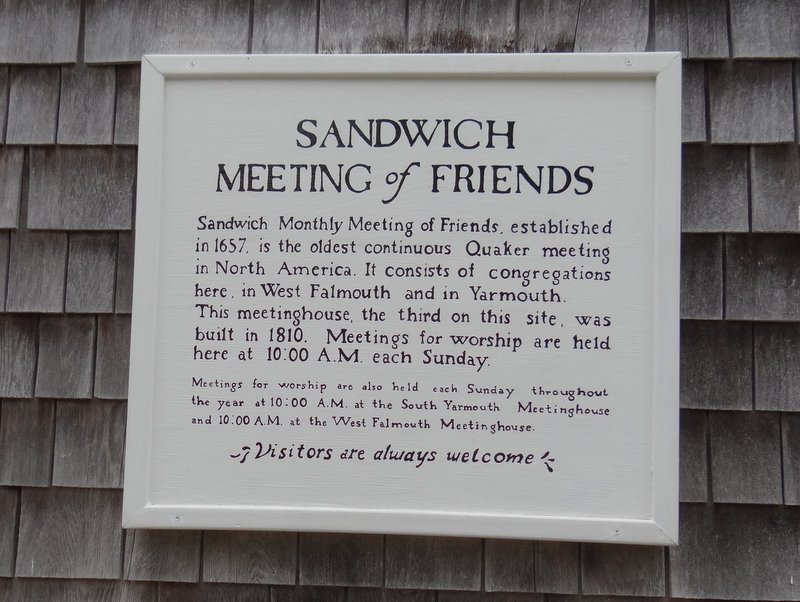 SANDWICH
MEETING of FRIENDS
Sandwich Monthly Meeting of Friends, established
in 1657, is the oldest continuous Quaker meeting
in North America. It consists of congregations
here, in West Falmouth and in Yarmouth.
This meetinghouse, the third on this site, was
built in 1810. Meetings for worship are held
here at 10:00 A.M. each Sunday.
Meetings for worship are also held each Sunday throughout
the year at 10:00 A.M. at the South Yarmouth Meetinghouse
and 10:00 A.M. at the West Falmouth Meetinghouse.
Visitors are always welcome